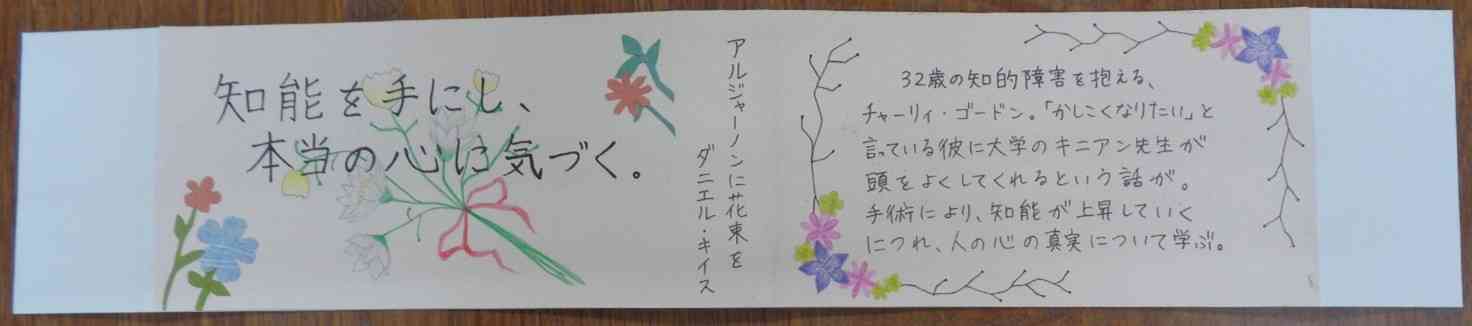 知能を手にし、
本当の心に気づく。
アルジャーノンに花束を
ダニエル・キイス
32歳の知的障害を抱える、
チャーリィ・ゴードン。「かしこくなりたい」と
言っている彼に大学のキニアン先生が
頭をよくしてくれるという話が。
手術により、知能が上昇していく
につれ、人の心の真実について学ぶ。